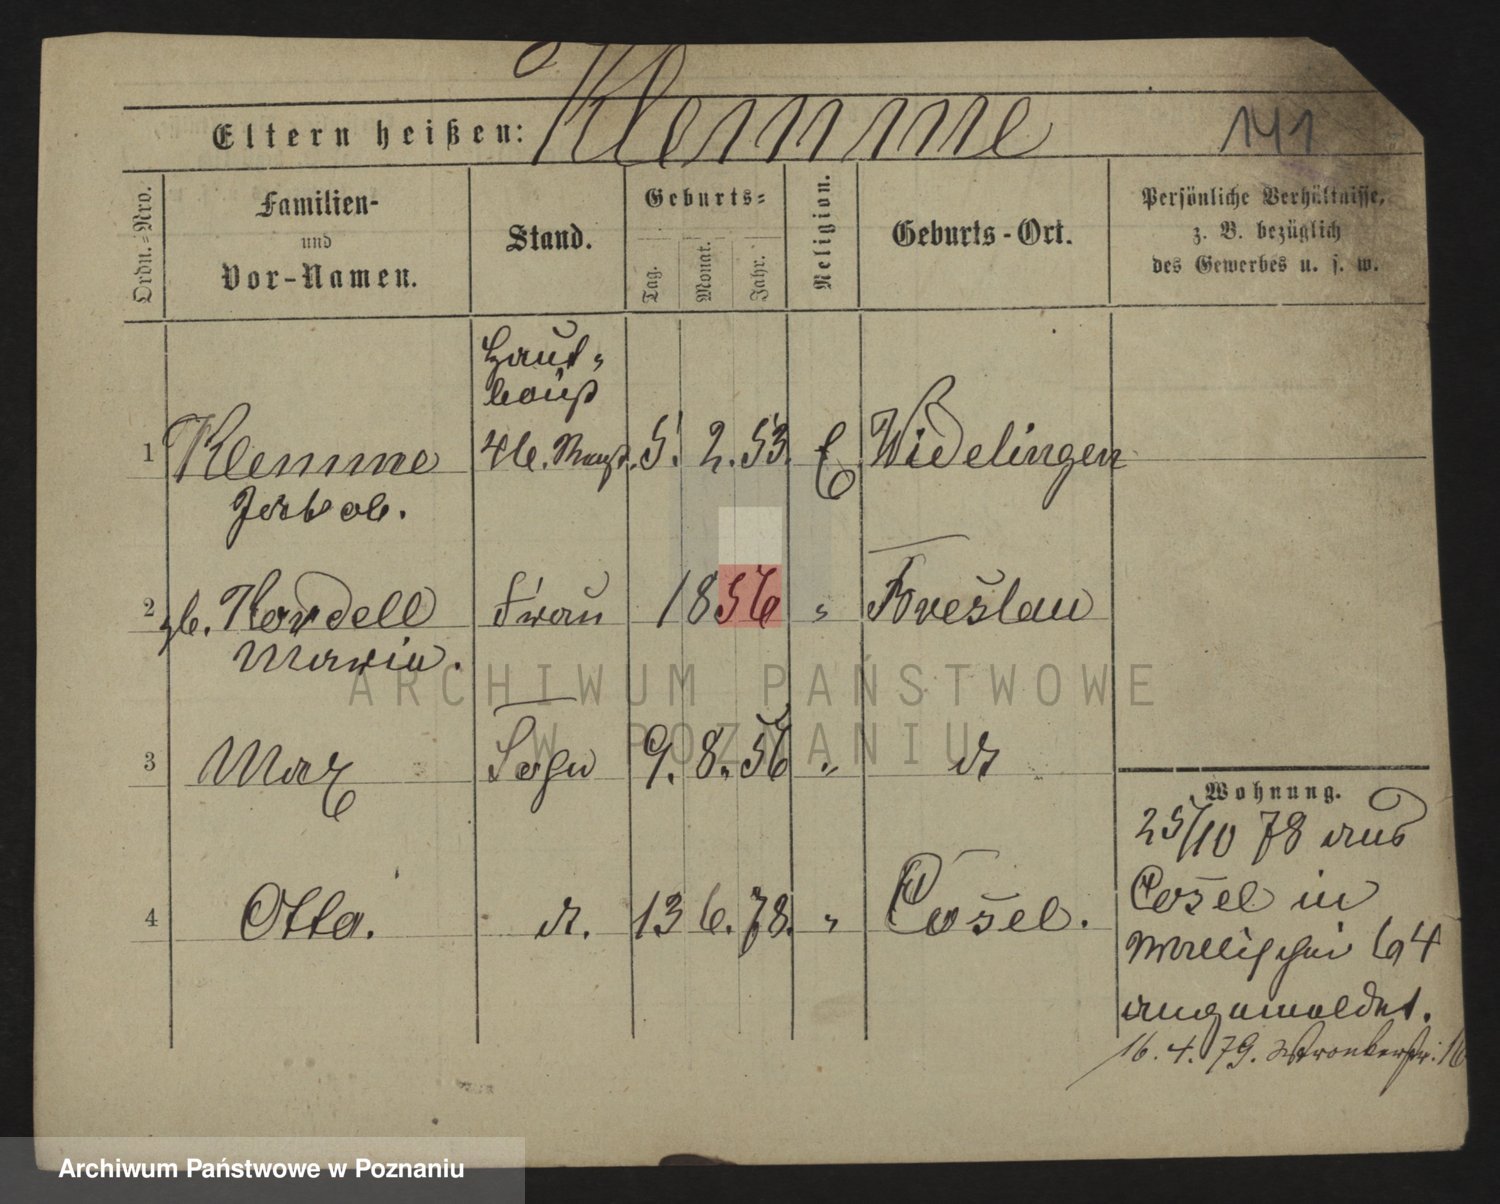 Eltern heißen: Klemme 141
Ordn.=Nro.
Familien-
und
Vor-Namen.
Stand.
Geburts=
Tag.
Monat.
Jahr.
Religion.
Geburts-Ort.
Persönliche Verhältnisse,
z. B. bezüglich
des Gewerbes u. s. w.
1 Klemme 5. 2. 53. E Widelingen
Jakob.
2 gb. Kordell Frau 1856 " Breslau
Maria.
3 Max Sohn 9. 8. 56 " d
4 Otto. d. 13 6. 78. " Cosel.
Wohnung.
25/10 78 aus
Cosel in
Wallischei 64
angemeldet.
16. 4. 79. Wronkerstr. 16
ARCHIWUM PAŃSTWOWE
W POZNANIU
Archiwum Państwowe w Poznaniu